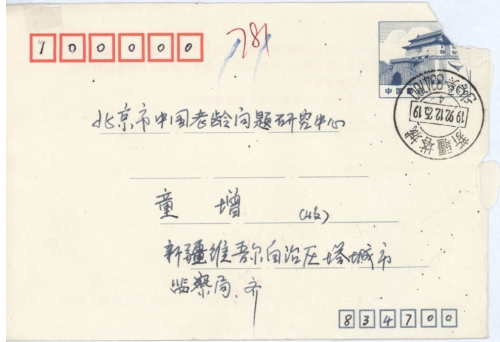 100000
781
中国
新疆塔城
1992.12.25.19
北京市中国老龄问题研究中心
童增(收)
新疆维吾尔自治区塔城市
监察局.齐
834700